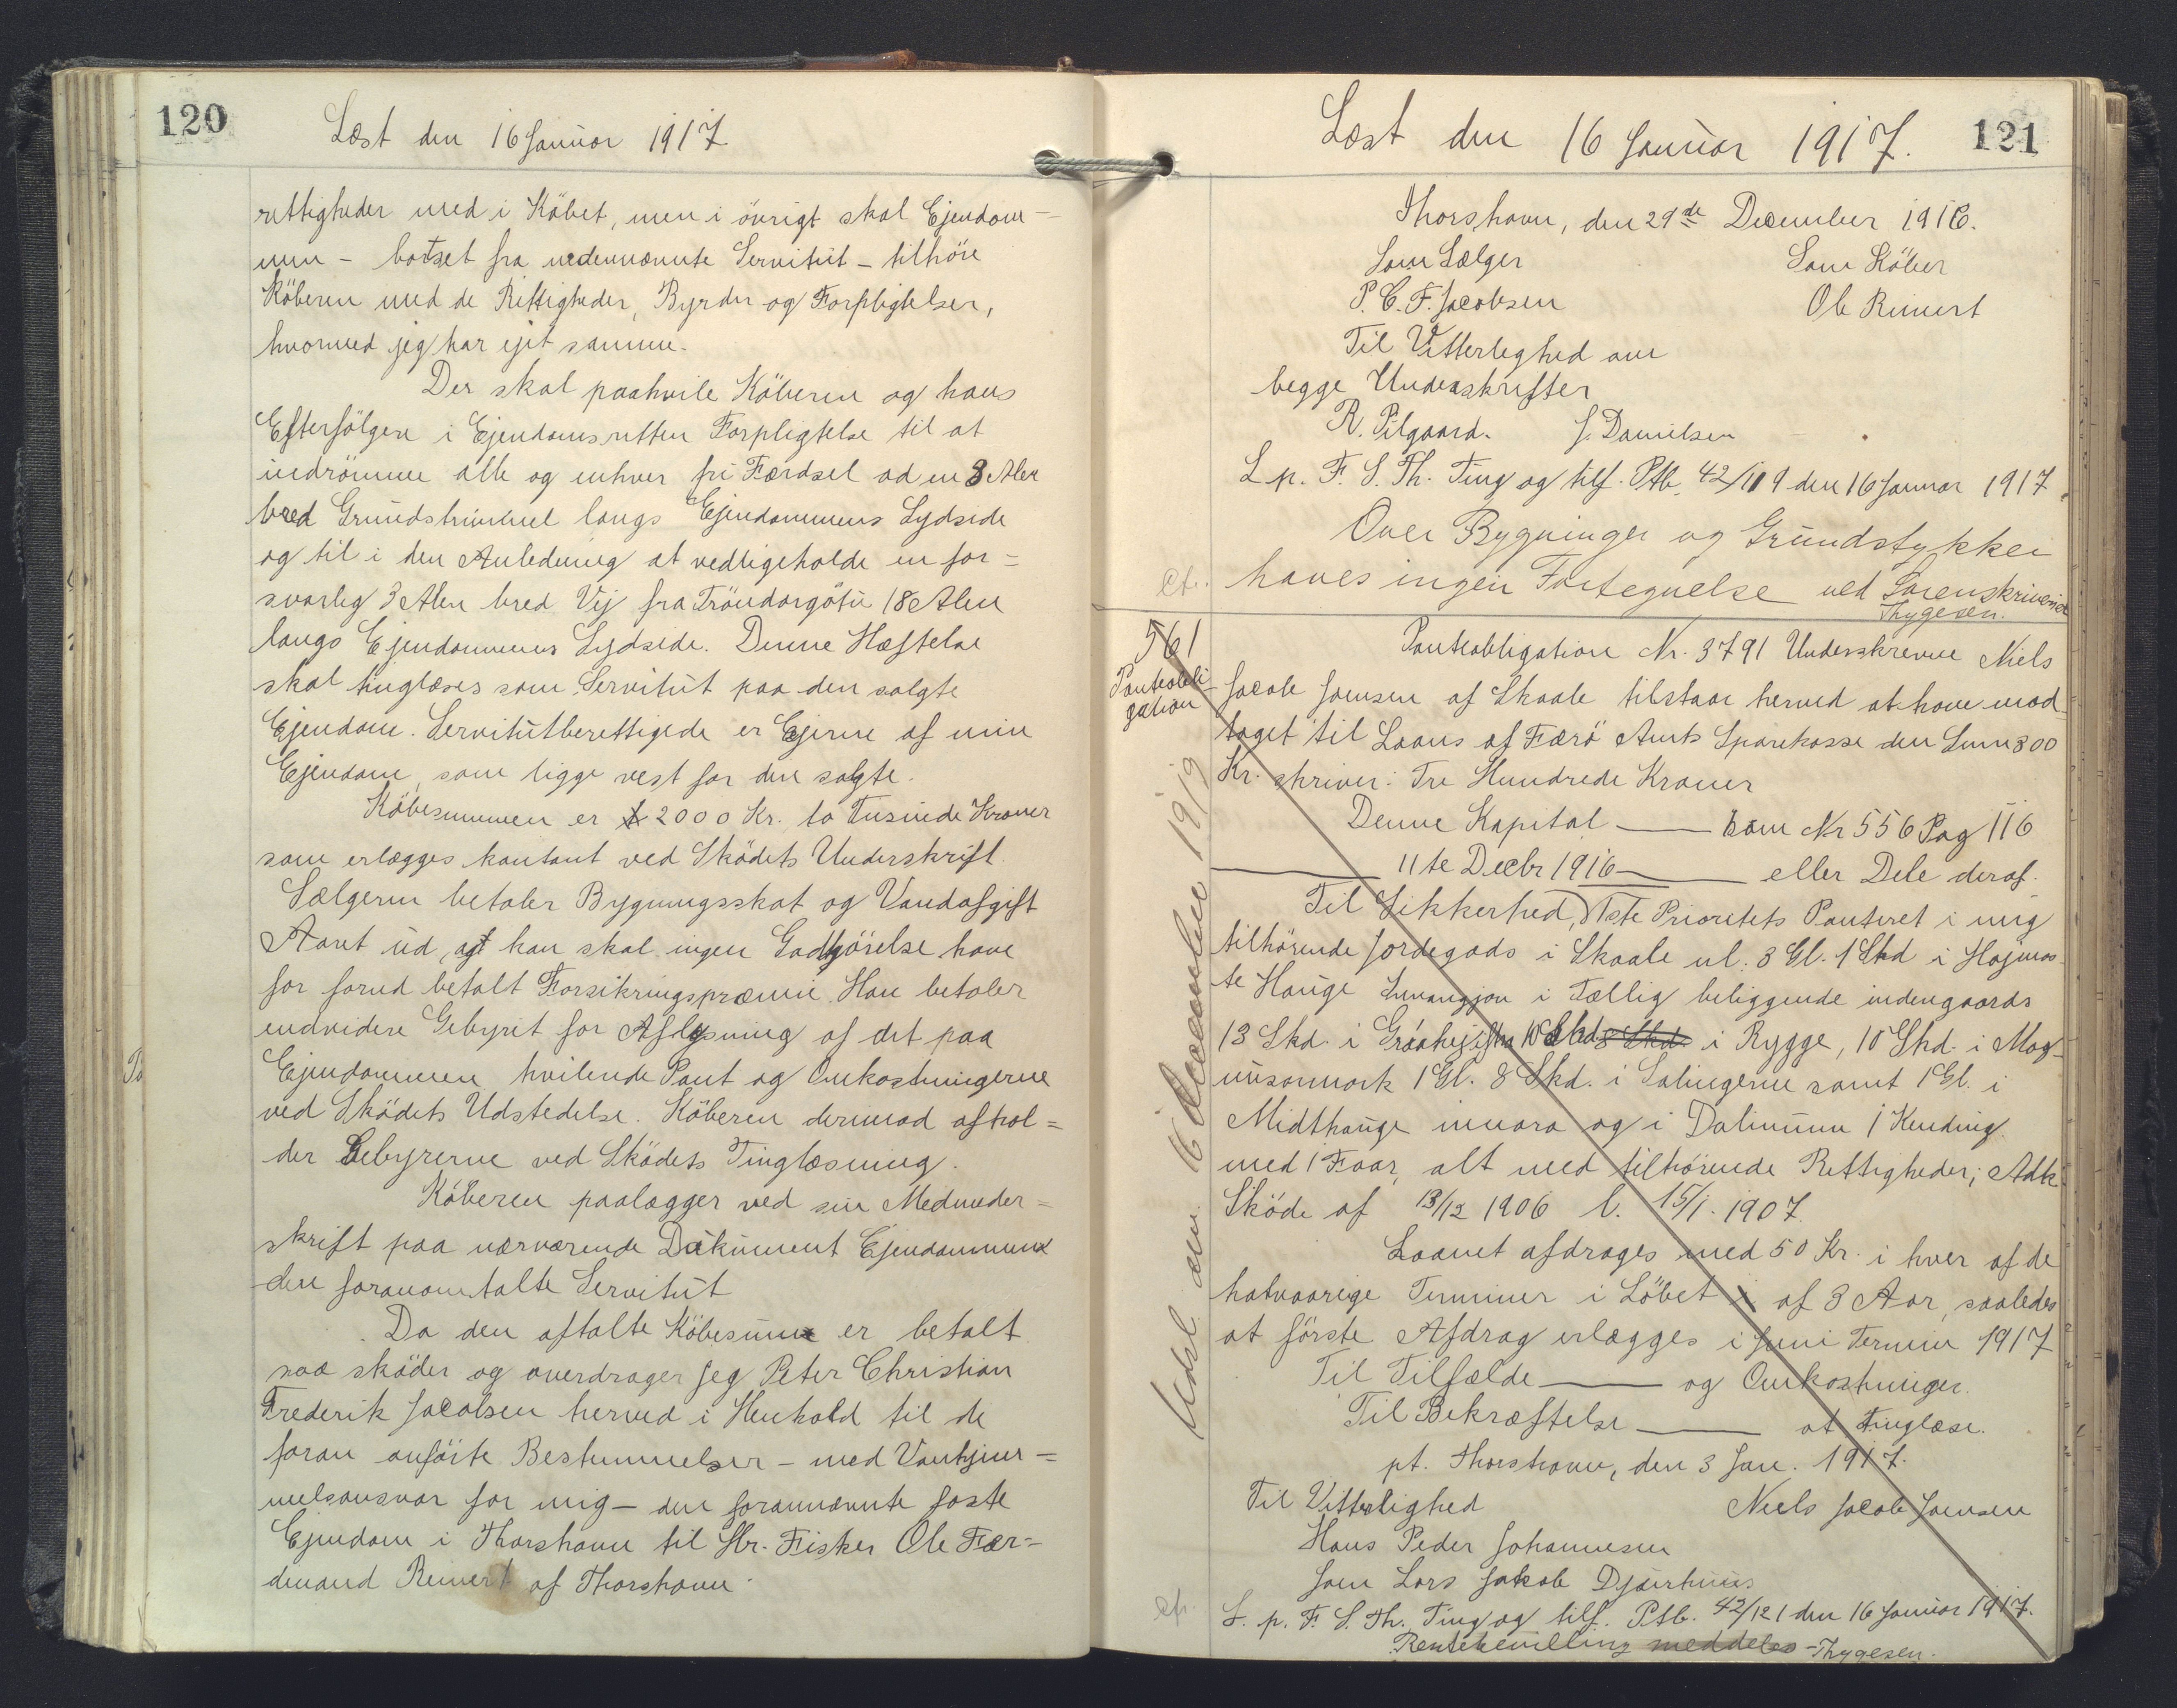 120
Læst den 16 Januar 1917
rettigheder med i Köbet, men i övrigt skal Ejendom-
men - bortset fra nedennævnte Servitut - tilhöre
Köberen med de Rettigheder, Byrder og Forpligtelser,
hvormed jeg har ejet samme.
Der skal paahvile Köberen og hans
Efterfölgere i Ejendomsretten Forpligtelse til at
indrömme alle og enhver fri Færdsel ad en 3 Alen
bred Grundstrimmel langs Ejendommens Sydside
og til i den Anledning at vedligeholde en for=
svarlig 3 Alen bred Vej fra Tróndargötu 18 Alen
langs Ejendommens Sydside. Denne Hæftelse
skal tinglæses som Servitut paa den solgte
Ejendom. Servitutberettigede er Ejerne af min
Ejendom, som ligge vest for den solgte.
Köbesummen er 2000 Kr. to Tusinde Kroner
som erlægges kontant ved Sködets Underskrift.
Sælgeren betaler Bygningsskat og Vandafgift
Aaret ud, og han skal ingen Godtgörelse have
for forud betalt Forsikringspræmie. Han betaler
endvidere Gebyret for Aflysning af det paa
Ejendommen hvilende Pant og Omkostningerne
ved Sködets Udstedelse. Köberen derimod afhol=
der Gebyrerne ved Sködets Tinglæsning.
Köberen paalægger ved sin Medunder=
skrift paa nærværende Dokument Ejendommen
den foranomtalte Servitut
Da den aftalte Köbesum er betalt
saa sköder og overdrager jeg Peter Christian
Frederik Jacobsen herved i Henhold til de
foran anförte Bestemmelser - med Vanhjem=
melsansvar for mig - den forannævnte faste
Ejendom i Thorshavn til Hr. Fisker Ole Fær=
dinand Reinert af Thorshavn.
Læst den 16 Januar 1917.
121
Thorshavn, den 29de December 1916.
Som Sælger Som Köber
P. C. F. Jacobsen Ole Reinert
Til Vitterlighed om
begge Underskrifter
R. Pilgaard. J. Danielsen
L. p. F. S. Th. Ting og tilf. Ptb. 42/119 den 16 Januar 1917.
Over Bygninger og Grundstykker
cfr. haves ingen Fortegnelse ved Sorenskriveriet
Thygesen.
561
Panteobli-
gation
Panteobligation Nr. 3791 Underskrevne Niels
Jacob Joensen af Skaale tilstaar herved at have mod-
taget til Laans af Færö Amts Sparekasse den Sum 300
Kr. skriver: Tre Hundrede Kroner
Denne Kapital —— som Nr 556 Pag 116
—— 11te Decbr 1916 —— eller Dele deraf.
Til Sikkerhed, 1ste Prioritets Panteret i mig
tilhörende Jordegods i Skaale nl. 3 Gl. 1 Skd i Hojmas-
te Hauge i Fællig beliggende indengaards
13 Skd. i 10 Skd 8 Skd. i Rygge, 10 Skd. i Mag-
nusarmørk 1 Gl. 8 Skd. i Salingerne samt 1 Gl. i
Midthauge innara og i Dalinum 1 Kending
med 1 Faar, alt med tilhörende Rettigheder; Adk.
Sköde af 13/12 1906 l. 15/1. 1907.
Laanet afdrages med 50 Kr. i hver af de
halvaarige Terminer i Löbet af 3 Aar, saaledes
at förste Afdrag erlægges i Juni Termin 1917
Til Tilfælde —— og Omkostninger.
Til Bekræftelse —— at tinglæse.
pt. Thorshavn, den 3 Jan. 1917.
Til Vitterlighed Niels Jacob Joensen
Hans Peder Johannesen
Joen Lars Jakob Djurhuus
cfr. L. p. F. S. Th. Ting og tilf. Ptb. 42/121 den 16 Januar 1917.
Rentebevilling meddeles - Thygesen.
Udsl. den 16 December 1919